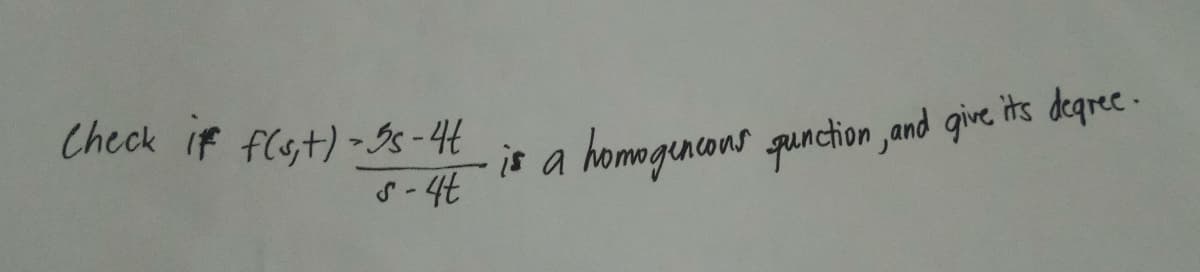 Check if f(s,t) = 5s - 4t / s - 4t is a homogeneous function, and give its degree.